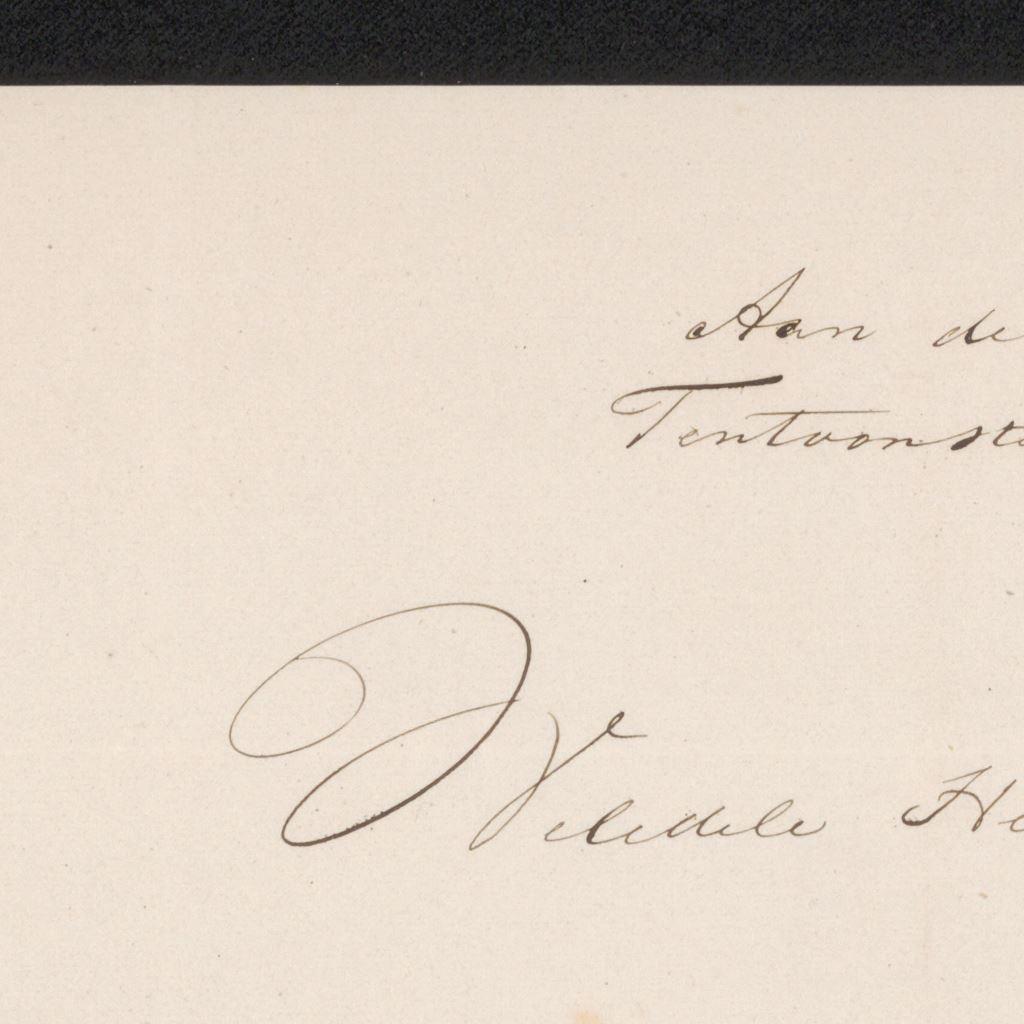 Aan de
Tentoonste
Weledele He